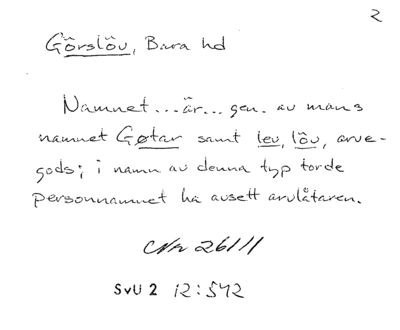 2
Görslöv, Bara hd
Namnet...är...gen. av mans
namnet Gøtar samt lev, löv, arve-
gods; i namn av denna typ torde
personnamnet ha avsett arvlåtaren.
26111
SVU 2 12:542